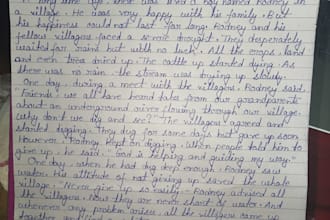 long time ago, there was lived a boy named Rodney in
village. He was very happy with his family. But
his happiness could not last for long. Rodney and his
fellow villagers faced a severe drought. They desperately
waited for rains but with no luck. All the crops, land
and even trees dried up. The cattle up started dying. As
there was no rain, the stream was drying up slowly.
One day, during a meet with the villagers, Rodney said,
"Friends, we all have heard tales from our grandparents
about an underground river flowing through our village.
Why don't we dig and see?" The villagers agreed and
started digging. They dug for some days but gave up soon.
However, Rodney kept on digging. When people told him to
give up, he said, "God is helping and guiding my way."
One day, when he had dug deep enough, Rodney saw
water. His attitude of not giving up saved the whole
village. "Never give up so easily." Rodney advised all
the villagers. Now they are never short of water. And
whenever any problem arises, all the villagers came up
together